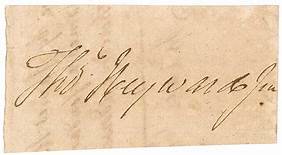 Tho^s Heyward Jun